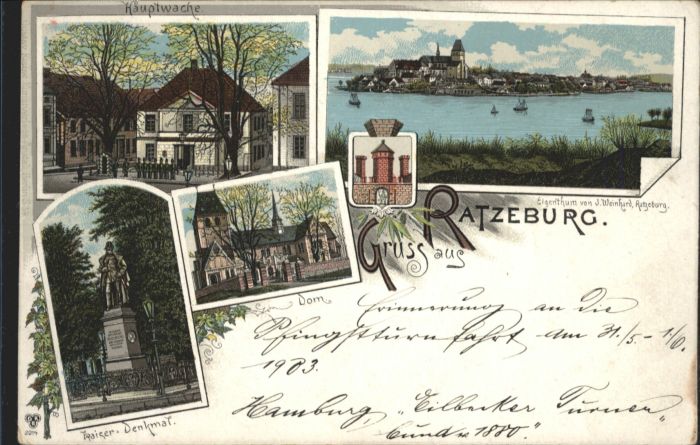 Hauptwache.
Eigenthum von J. Weinhird, Ratzeburg.
Gruss aus
RATZEBURG.
Dom
Kaiser-Denkmal.
Erinnerung an die
Pfingstturnfahrt am 31./5 - 1./6.
1903.
Hamburg, "Eilbecker Turner
bund v. 1880".